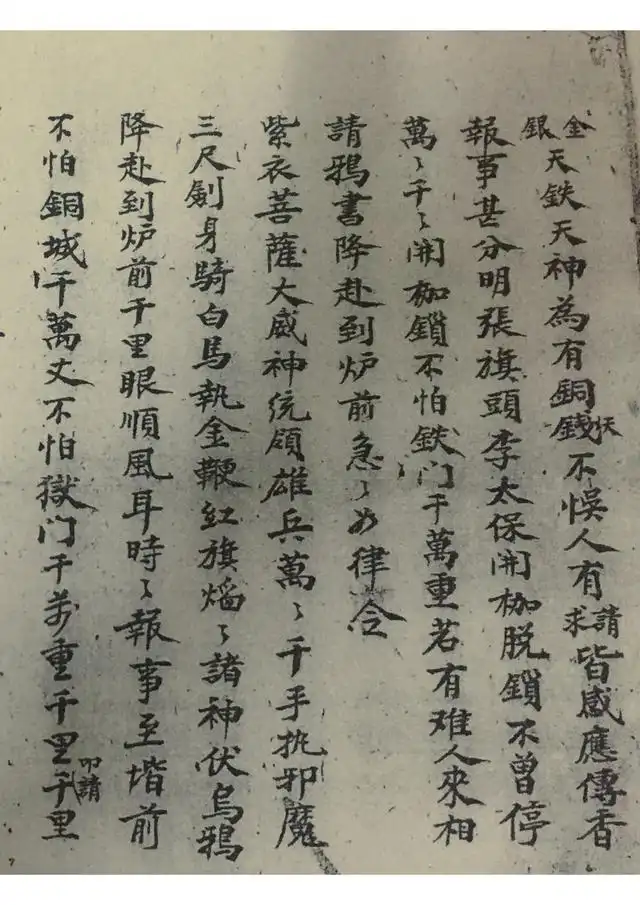 金銀天鉄天神為有銅錢妖不悞人有請求皆感應傳香
報事甚分明張旗頭李太保開枷脱鎖不曾停
萬〻千〻開枷鎖不怕鉄门千萬重若有难人來相
請鴉書降赴到炉前急〻如律令
紫衣菩薩大威神统領雄兵萬〻千手执邪魔
三尺劍身騎白馬執金鞭紅旗焰〻諸神伏烏鴉
降赴到炉前千里眼順風耳時〻報事至堦前
不怕銅城千萬丈不怕獄门千萬重千里叩請千里